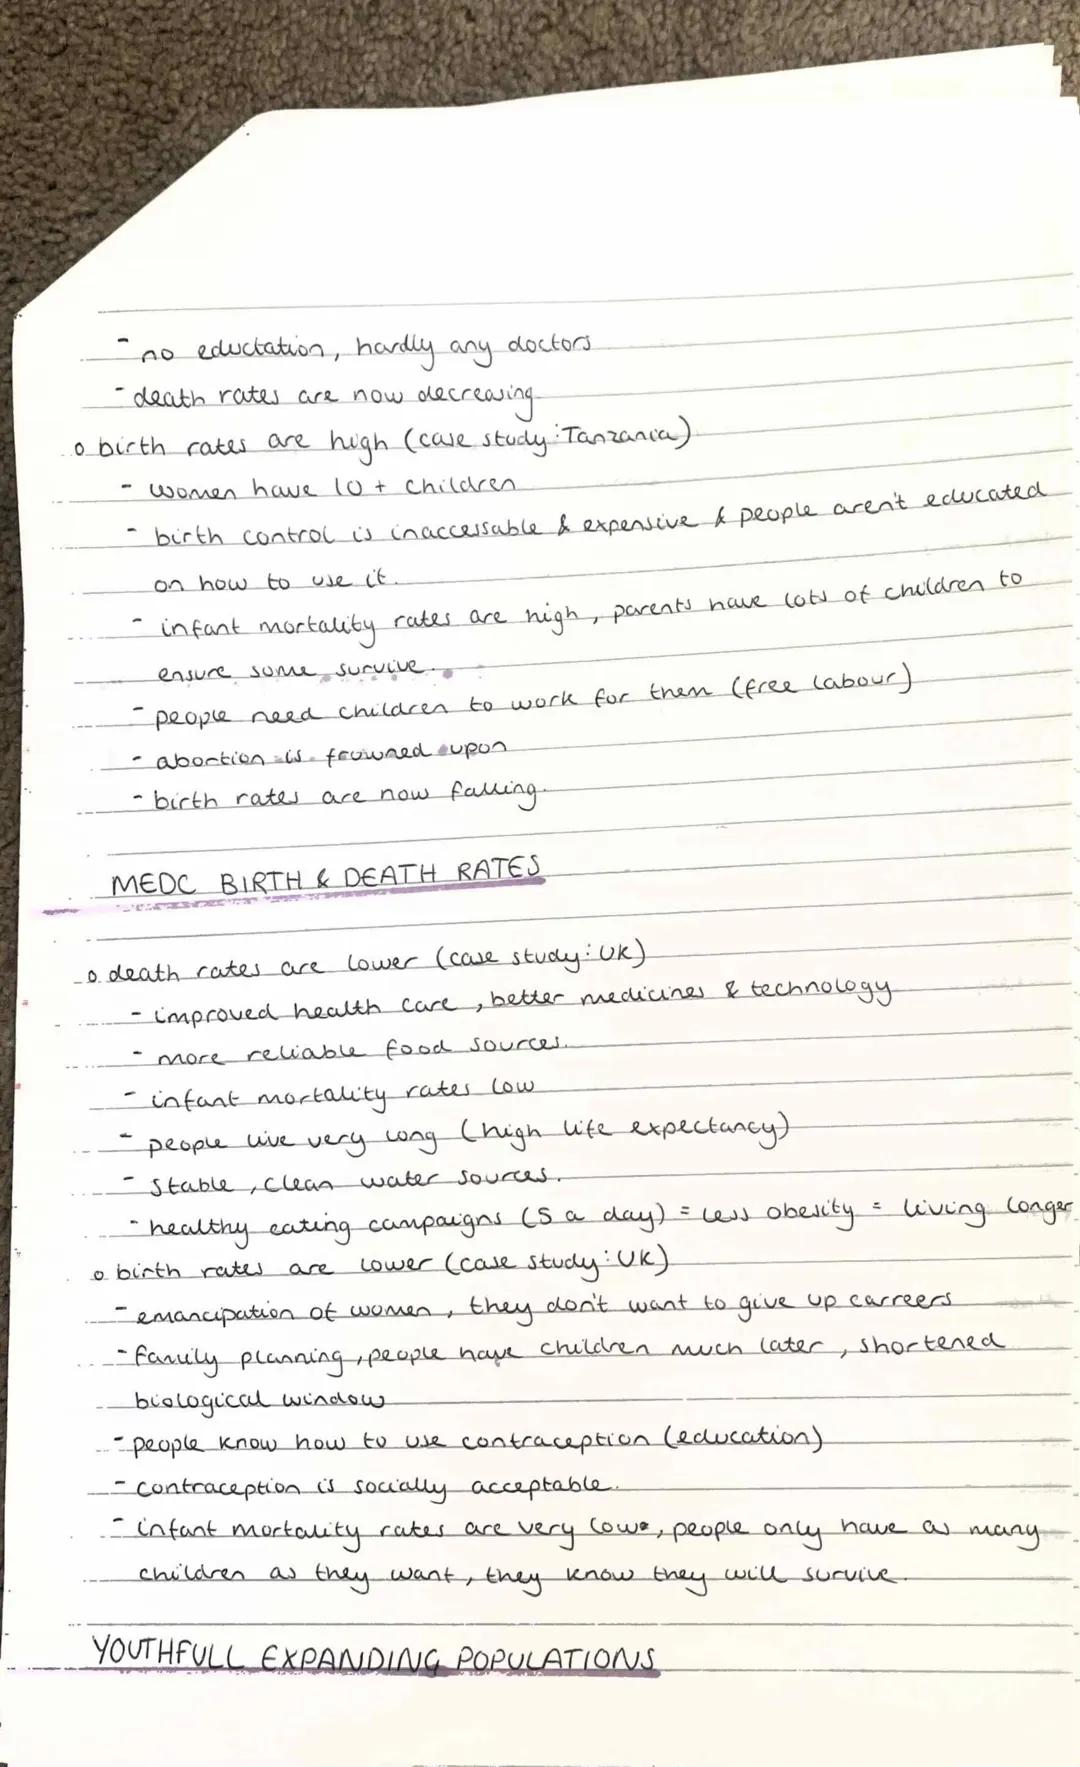 - no eductation, hardly any doctors
- death rates are now decreasing.
o birth rates are high (case study: Tanzania)
- women have 10 + children
- birth control is inaccessable & expensive & people aren't educated
on how to use it.
- infant mortality rates are high, parents have lots of children to
ensure some survive.
- people need children to work for them (free labour)
- abortion is frowned upon
- birth rates are now falling.
MEDC BIRTH & DEATH RATES
o death rates are lower (case study: UK)
- improved health care, better medicines & technology
- more reliable food sources.
- infant mortality rates low
- people live very long (high life expectancy)
- stable, clean water sources.
- healthy eating campaigns (5 a day) = less obesity = living longer
o birth rates are lower (case study: UK)
- emancipation of women, they don't want to give up carreers
- family planning, people have children much later, shortened
biological window
- people know how to use contraception (education)
- contraception is socially acceptable.
- infant mortality rates are very low, people only have as many
children as they want, they know they will survive.
YOUTHFULL EXPANDING POPULATIONS